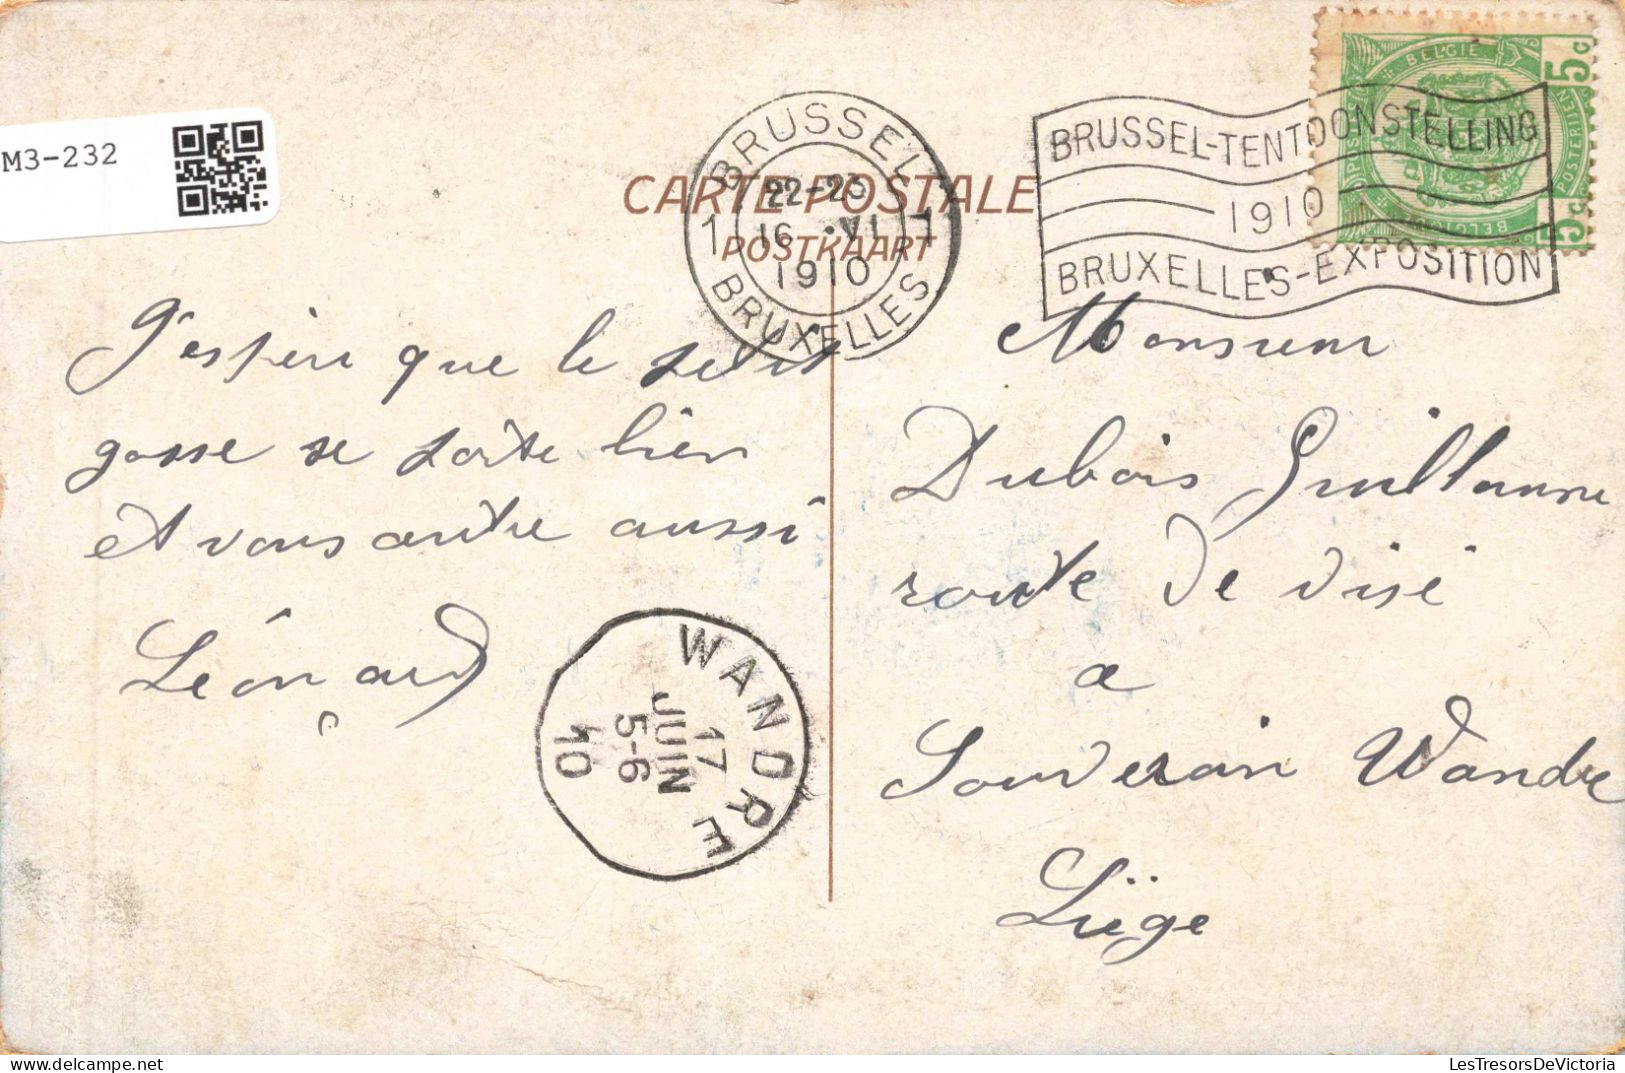 M3-232
CARTE POSTALE
POSTKAART
1 BRUSSEL 1
22-23
16 VI
1910
BRUXELLES
BRUSSEL-TENTOONSTELLING
1910
BRUXELLES-EXPOSITION
BELGIE
5c
POSTERIJEN
5c
J'espère que le petit
gosse se porte bien
et vous autre aussi
Léonard
WANDRE
17
JUIN
5-6
10
Monsieur
Dubois Guillaume
route de visé
a
Souverain Wandre
Liège
Delcampe.net
LesTresorsDeVictoria